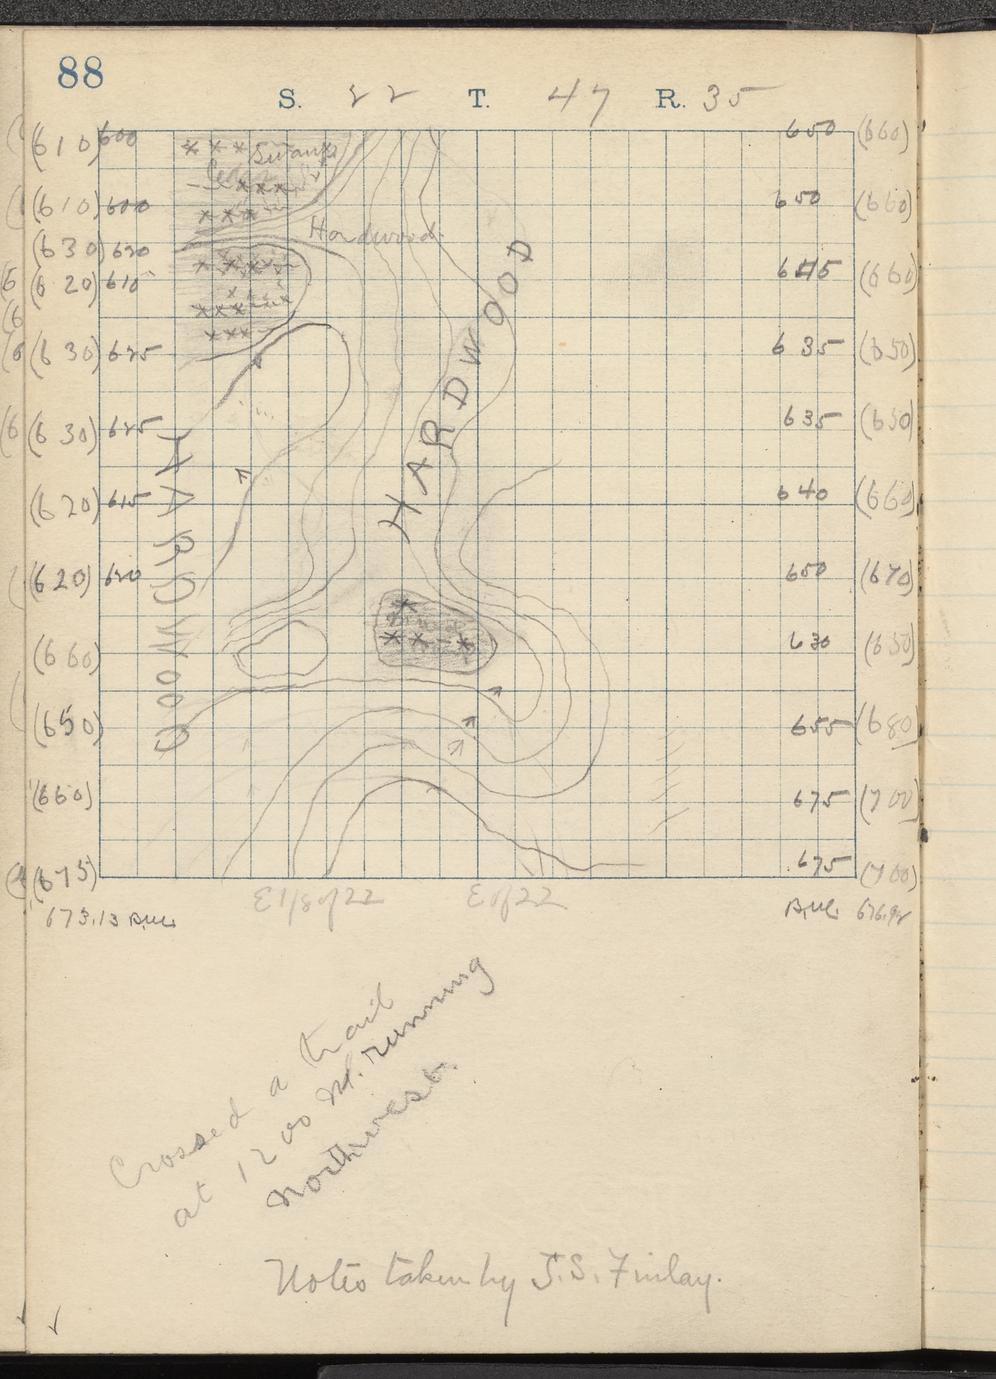 88
S. 22 T. 47 R. 35
(610) 600 Swamp 650 (660)
(610) 600 650 (660)
Hardwood
(630) 620
(620) 610 645 (660)
(630) 625 635 (650)
(630) 625 635 (650)
(620) 615 640 (660)
(620) 620 650 (670)
(660) 630 (650)
(650) 655 (680)
(660) 675 (700)
(675) 675 (700)
HARDWOOD
HARDWOOD
E 1/8 of 22 E of 22
673.13 B.M. B.M. 676.92
Crossed a trail
at 1200 M. running
Northwest.
Notes taken by J.S. Finlay.